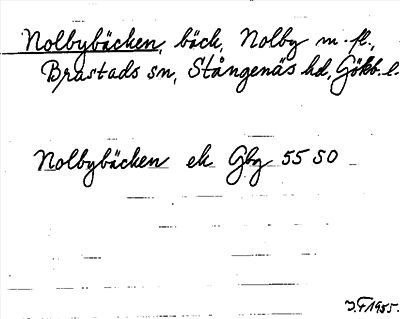 Nolbybäcken, bäck, Nolby m. fl.,
Brastads sn, Stångenäs hd, Gökb. l.
Nolbybäcken ek Gbg 55 SO
J.F 1955.